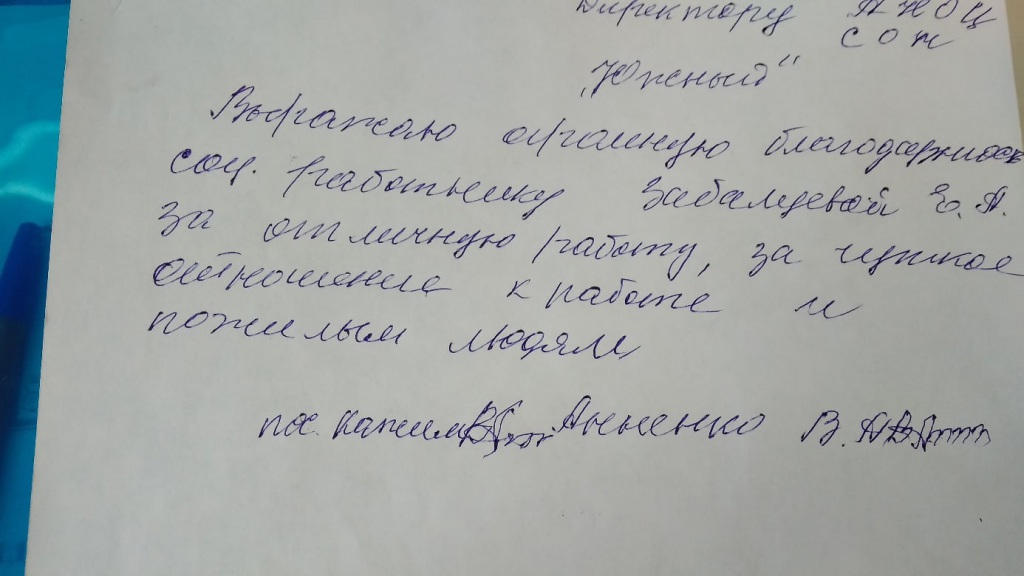 Директору АНОЦ
СОН
„Южный“
Выражаю огромную благодарнос
соц. работнику Забалуевой Е. А.
за отличную работу, за чуткое
отношение к работе и
пожилым людям
пос. Анненко В. А